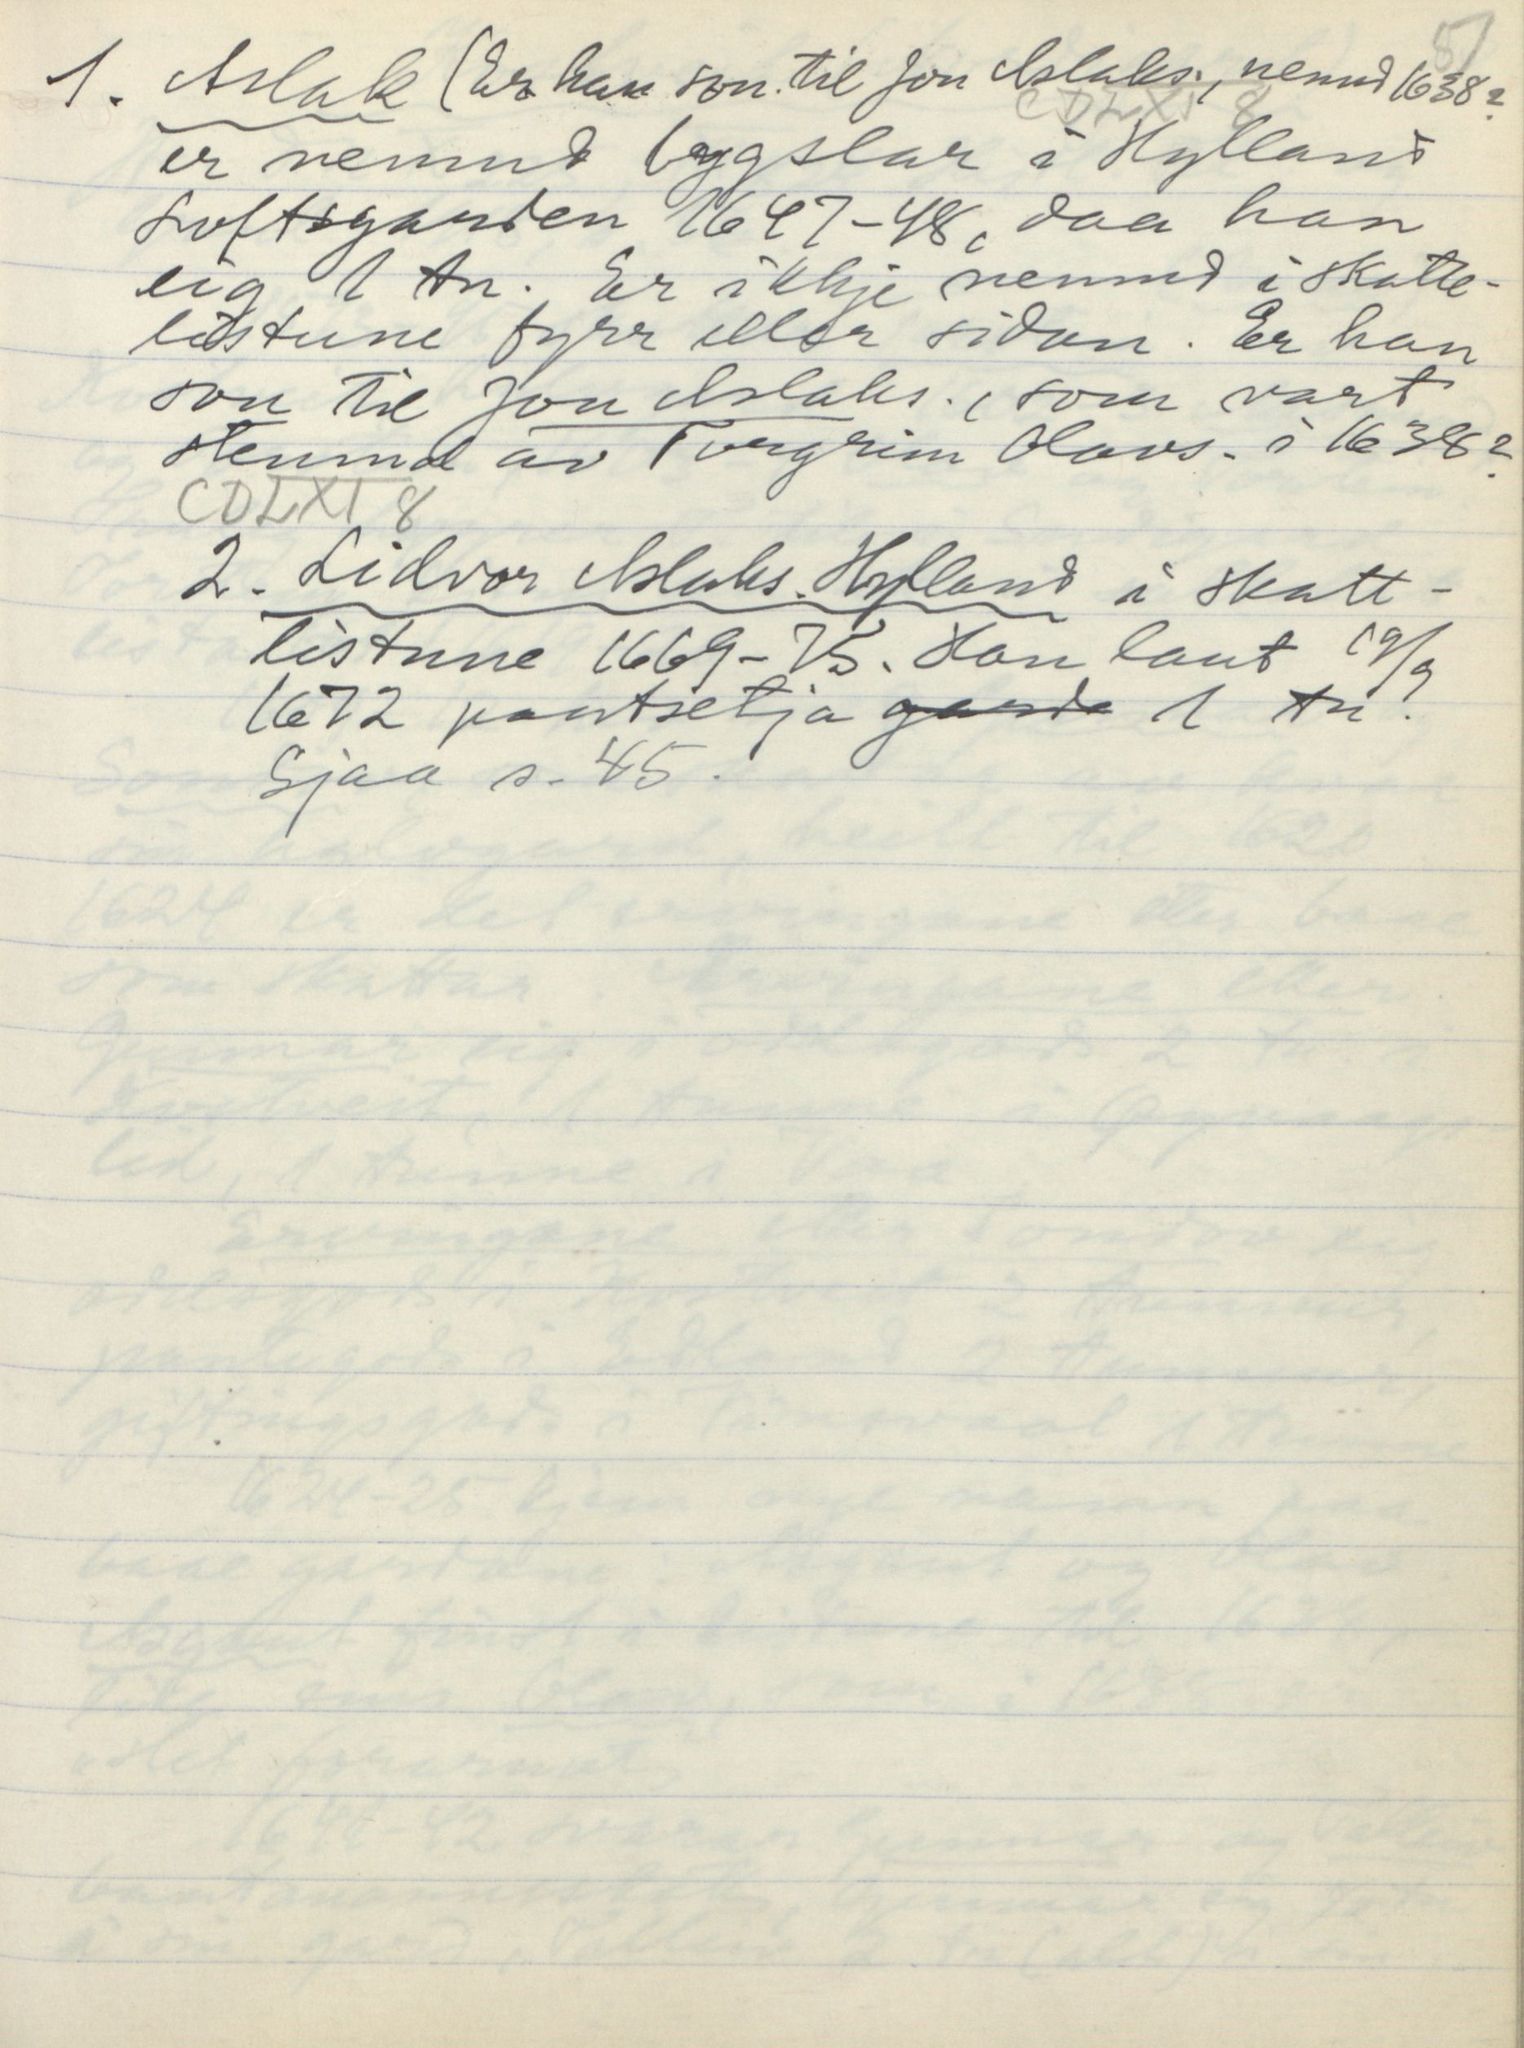 51
1. Aslak (Er han son til Jon Aslaks., nemnd 1638?
CDLXI 8
er nemnd bygslar i Hylland
Loftsgarden 1647-48, daa han
eig 1 tn. Er ikkje nemnd i skatte-
listune fyrr eller sidan. Er han
son til Jon Aslaks., som vart
stemnd av Torgrim Olavs. i 1638?
CDLXI 8
2. Lidvor Aslaks. Hylland i skatt-
listune 1669-75. Han laut 19/9
1672 pantsetja garde 1 tn.
Sjaa s. 45.